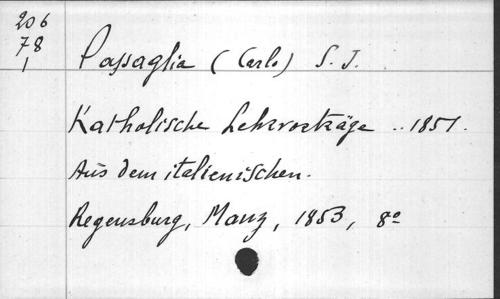 206
78
1
Passaglia (Carlo) S. J.
Katholische Lehrvorträge .. 1851.
Aus dem italienischen.
Regensburg, Manz, 1853, 8º